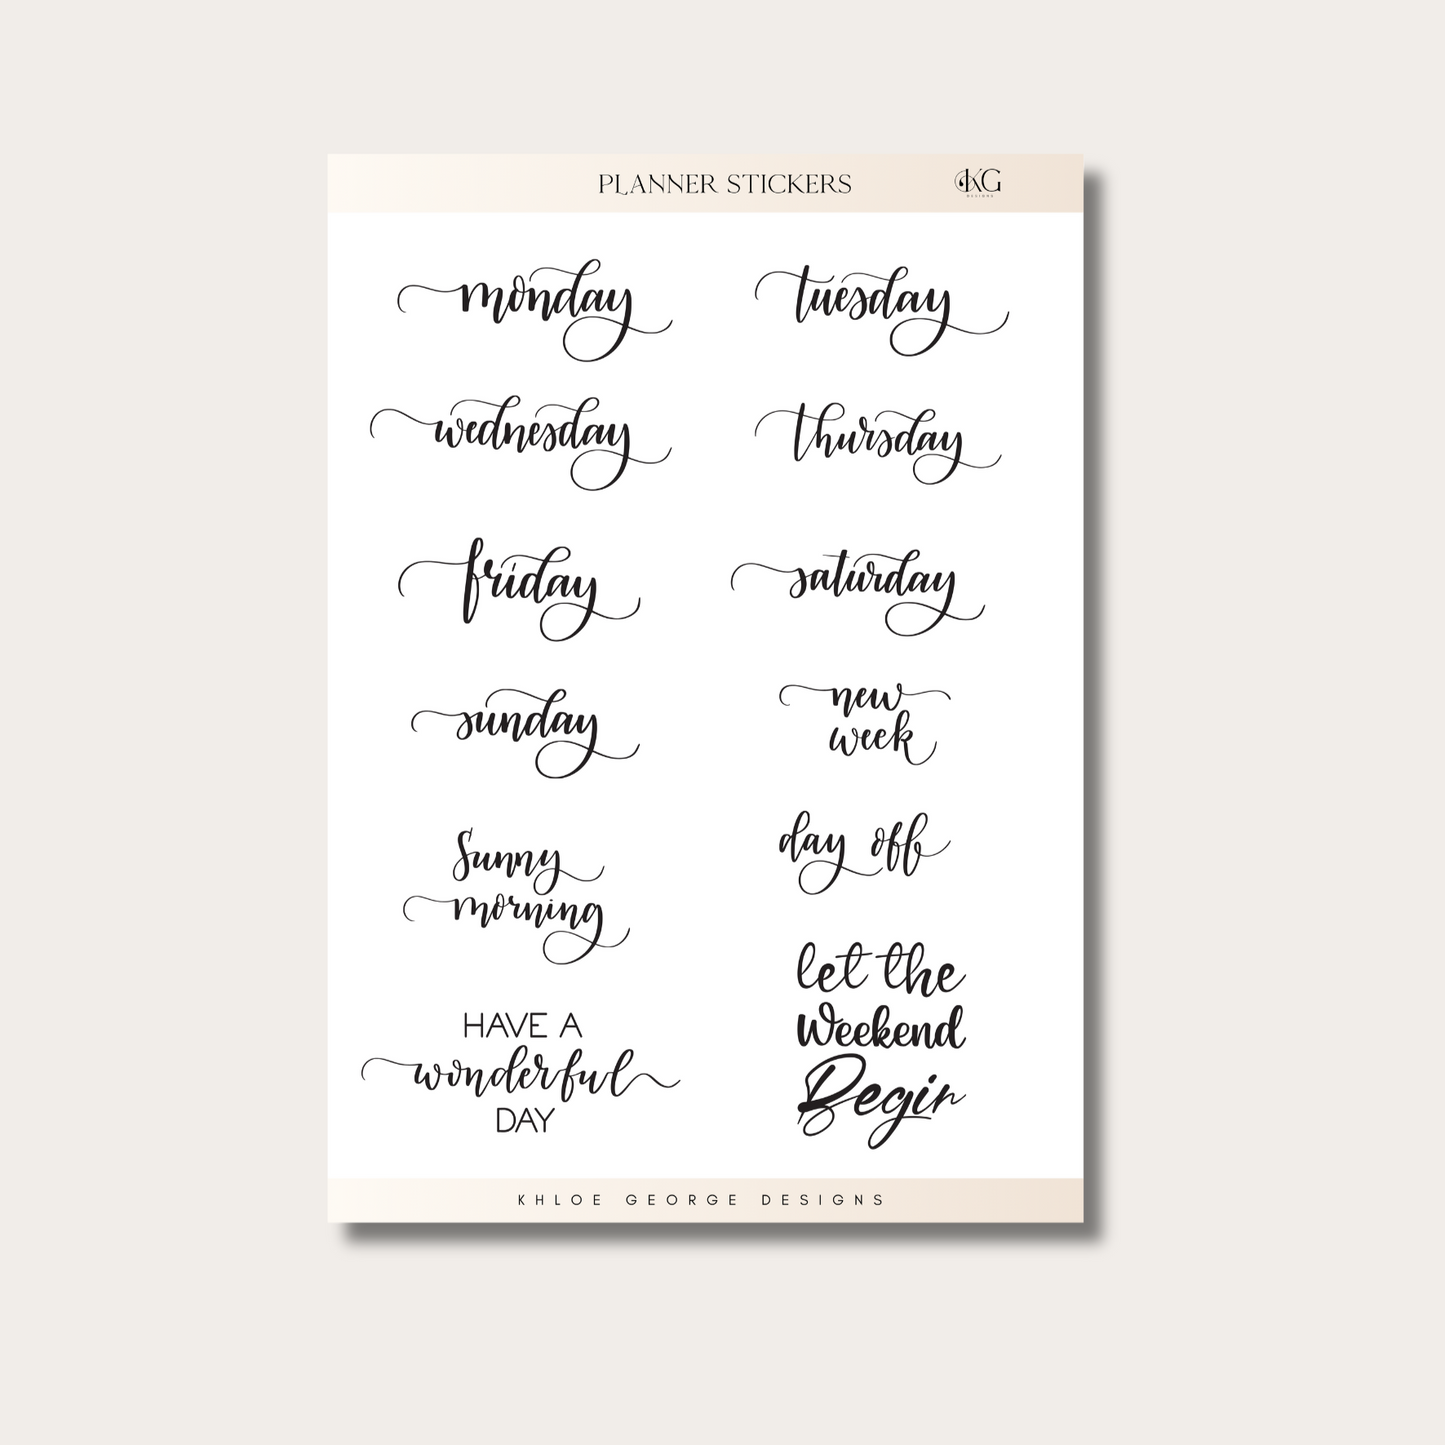 PLANNER STICKERS
KG
DESIGNS
monday
tuesday
wednesday
thursday
friday
saturday
sunday
new
week
Sunny
morning
day off
HAVE A
wonderful
DAY
let the
Weekend
Begin
KHLOE GEORGE DESIGNS